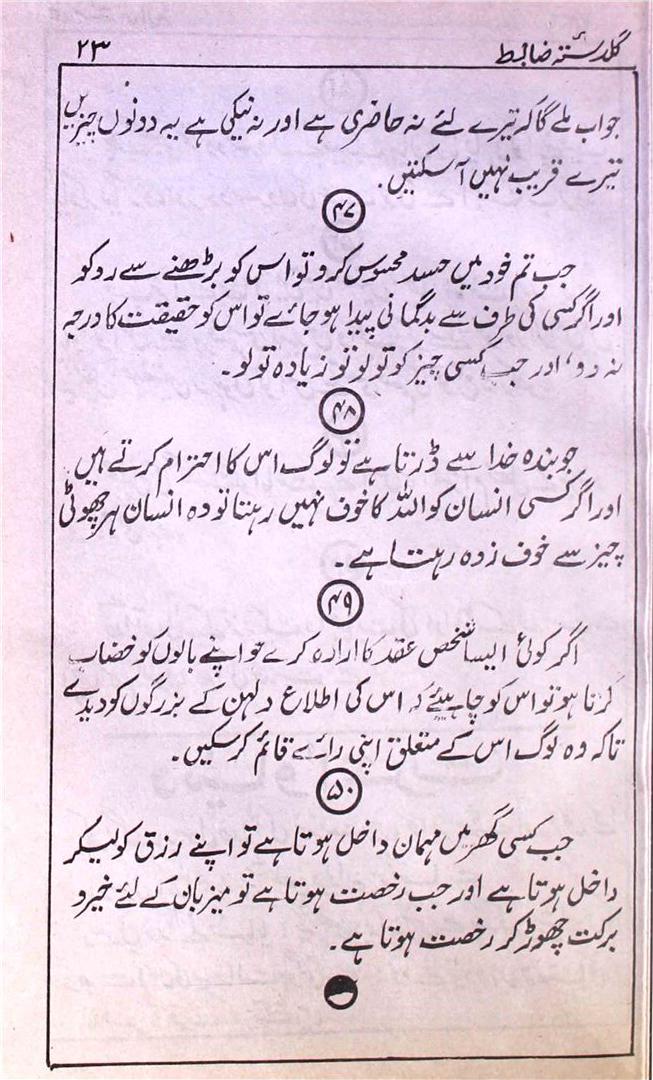 گلدستۂ ضابط
۲۳
جواب ملے گا کہ تیرے لئے نہ حاضری ہے اور نہ نیکی ہے یہ دونوں چیزیں
تیرے قریب نہیں آسکتیں.
۴۷
جب تم خود میں حسد محسوس کرو تو اس کو بڑھنے سے روکو
اور اگر کسی کی طرف سے بدگمانی پیدا ہو جائے تو اس کو حقیقت کا درجہ
نہ دو، اور جب کسی چیز کو تولو تو زیادہ تولو۔
۴۸
جو بندہ خدا سے ڈرتا ہے تو لوگ اس کا احترام کرتے ہیں
اور اگر کسی انسان کو اللہ کا خوف نہیں رہتا تو وہ انسان ہر چھوٹی
چیز سے خوف زدہ رہتا ہے۔
۴۹
اگر کوئی ایسا شخص عقد کا ارادہ کرے جو اپنے بالوں کو خضاب
کرتا ہو تو اس کو چاہیئے کہ اس کی اطلاع دلہن کے بزرگوں کو دیدے
تاکہ وہ لوگ اس کے متعلق اپنی رائے قائم کرسکیں۔
۵۰
جب کسی گھر میں مہمان داخل ہوتا ہے تو اپنے رزق کو لیکر
داخل ہوتا ہے اور جب رخصت ہوتا ہے تو میزبان کے لئے خیر و
برکت چھوڑ کر رخصت ہوتا ہے۔